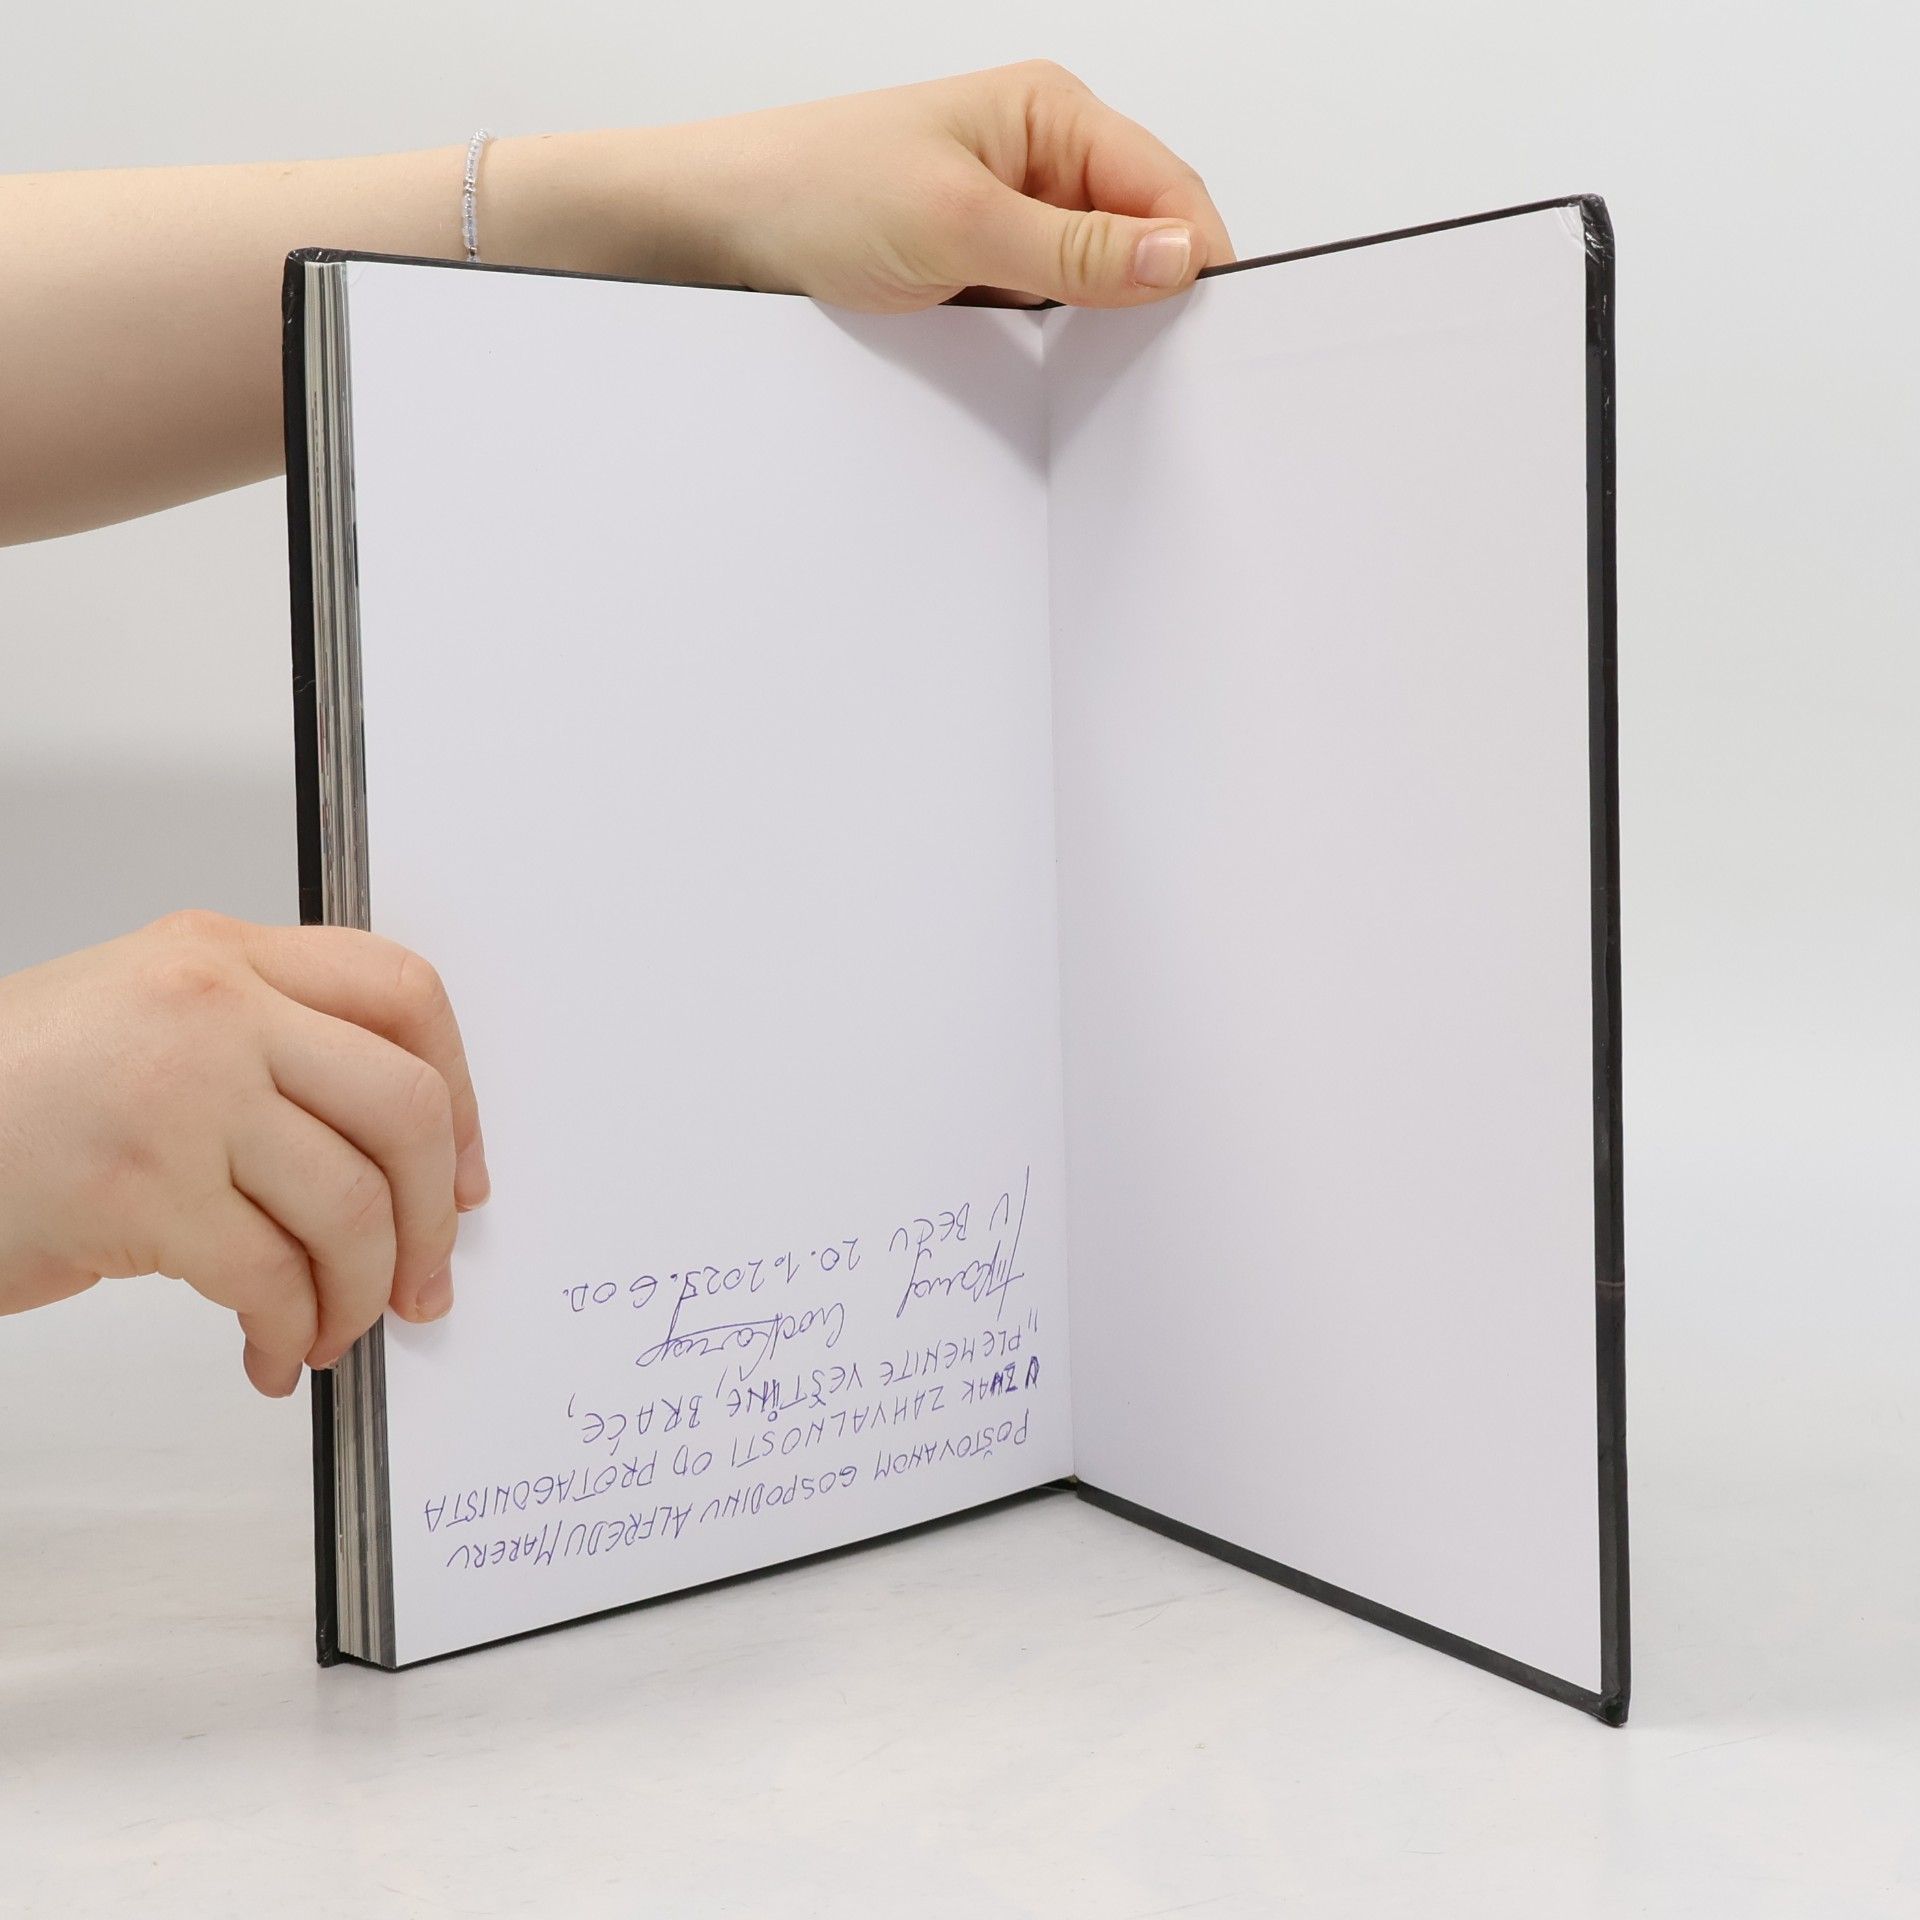 POŠTOVANOM GOSPODINU ALFREDU MARERU
U ZNAK ZAHVALNOSTI OD PROTAGONISTA
"PLEMENITE VEŠTINE, BRAĆE,
U BEČU 20.1.2025. GOD.